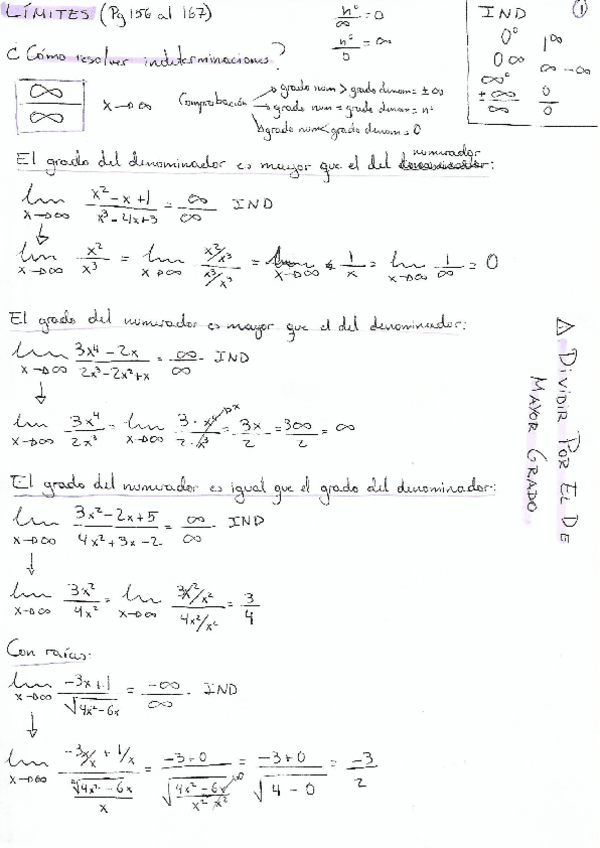 LÍMITES (Pg 156 al 167)
nº/∞ = 0
nº/0 = ∞
IND ①
0⁰ 1^∞
0·∞ ∞-∞
∞⁰ 0/0
±∞/∞
¿Cómo resolver indeterminaciones?
∞/∞ x→∞ Comprobación → grado num > grado denom = ±∞
→ grado num = grado denom = nº
↳ grado num < grado denom = 0
El grado del denominador es mayor que el del numerador:
lim x→∞ (x²-x+1)/(x³-4x+3) = ∞/∞ IND
↓
lim x→∞ x²/x³ = lim x→∞ (x²/x³)/(x³/x³) = lim x→∞ 1/x = lim x→∞ 1/∞ = 0
El grado del numerador es mayor que el del denominador:
lim x→∞ (3x⁴-2x)/(2x³-2x²+x) = ∞/∞ IND
↓
lim x→∞ 3x⁴/2x³ = lim x→∞ (3·x⁴)/(2·x³) →x = 3x/2 = 3∞/2 = ∞
⚠ DIVIDIR POR EL DE
MAYOR GRADO
El grado del numerador es igual que el grado del denominador:
lim x→∞ (3x²-2x+5)/(4x²+3x-2) = ∞/∞ IND
↓
lim x→∞ 3x²/4x² = lim x→∞ (3x²/x²)/(4x²/x²) = 3/4
Con raíces:
lim x→∞ (-3x+1)/√(4x²-6x) = -∞/∞ IND
↓
lim x→∞ (-3x/x + 1/x)/(²√(4x²-6x)/x) = (-3+0)/√(4x²/x² - 6x/x²) →0 = (-3+0)/√(4-0) = -3/2